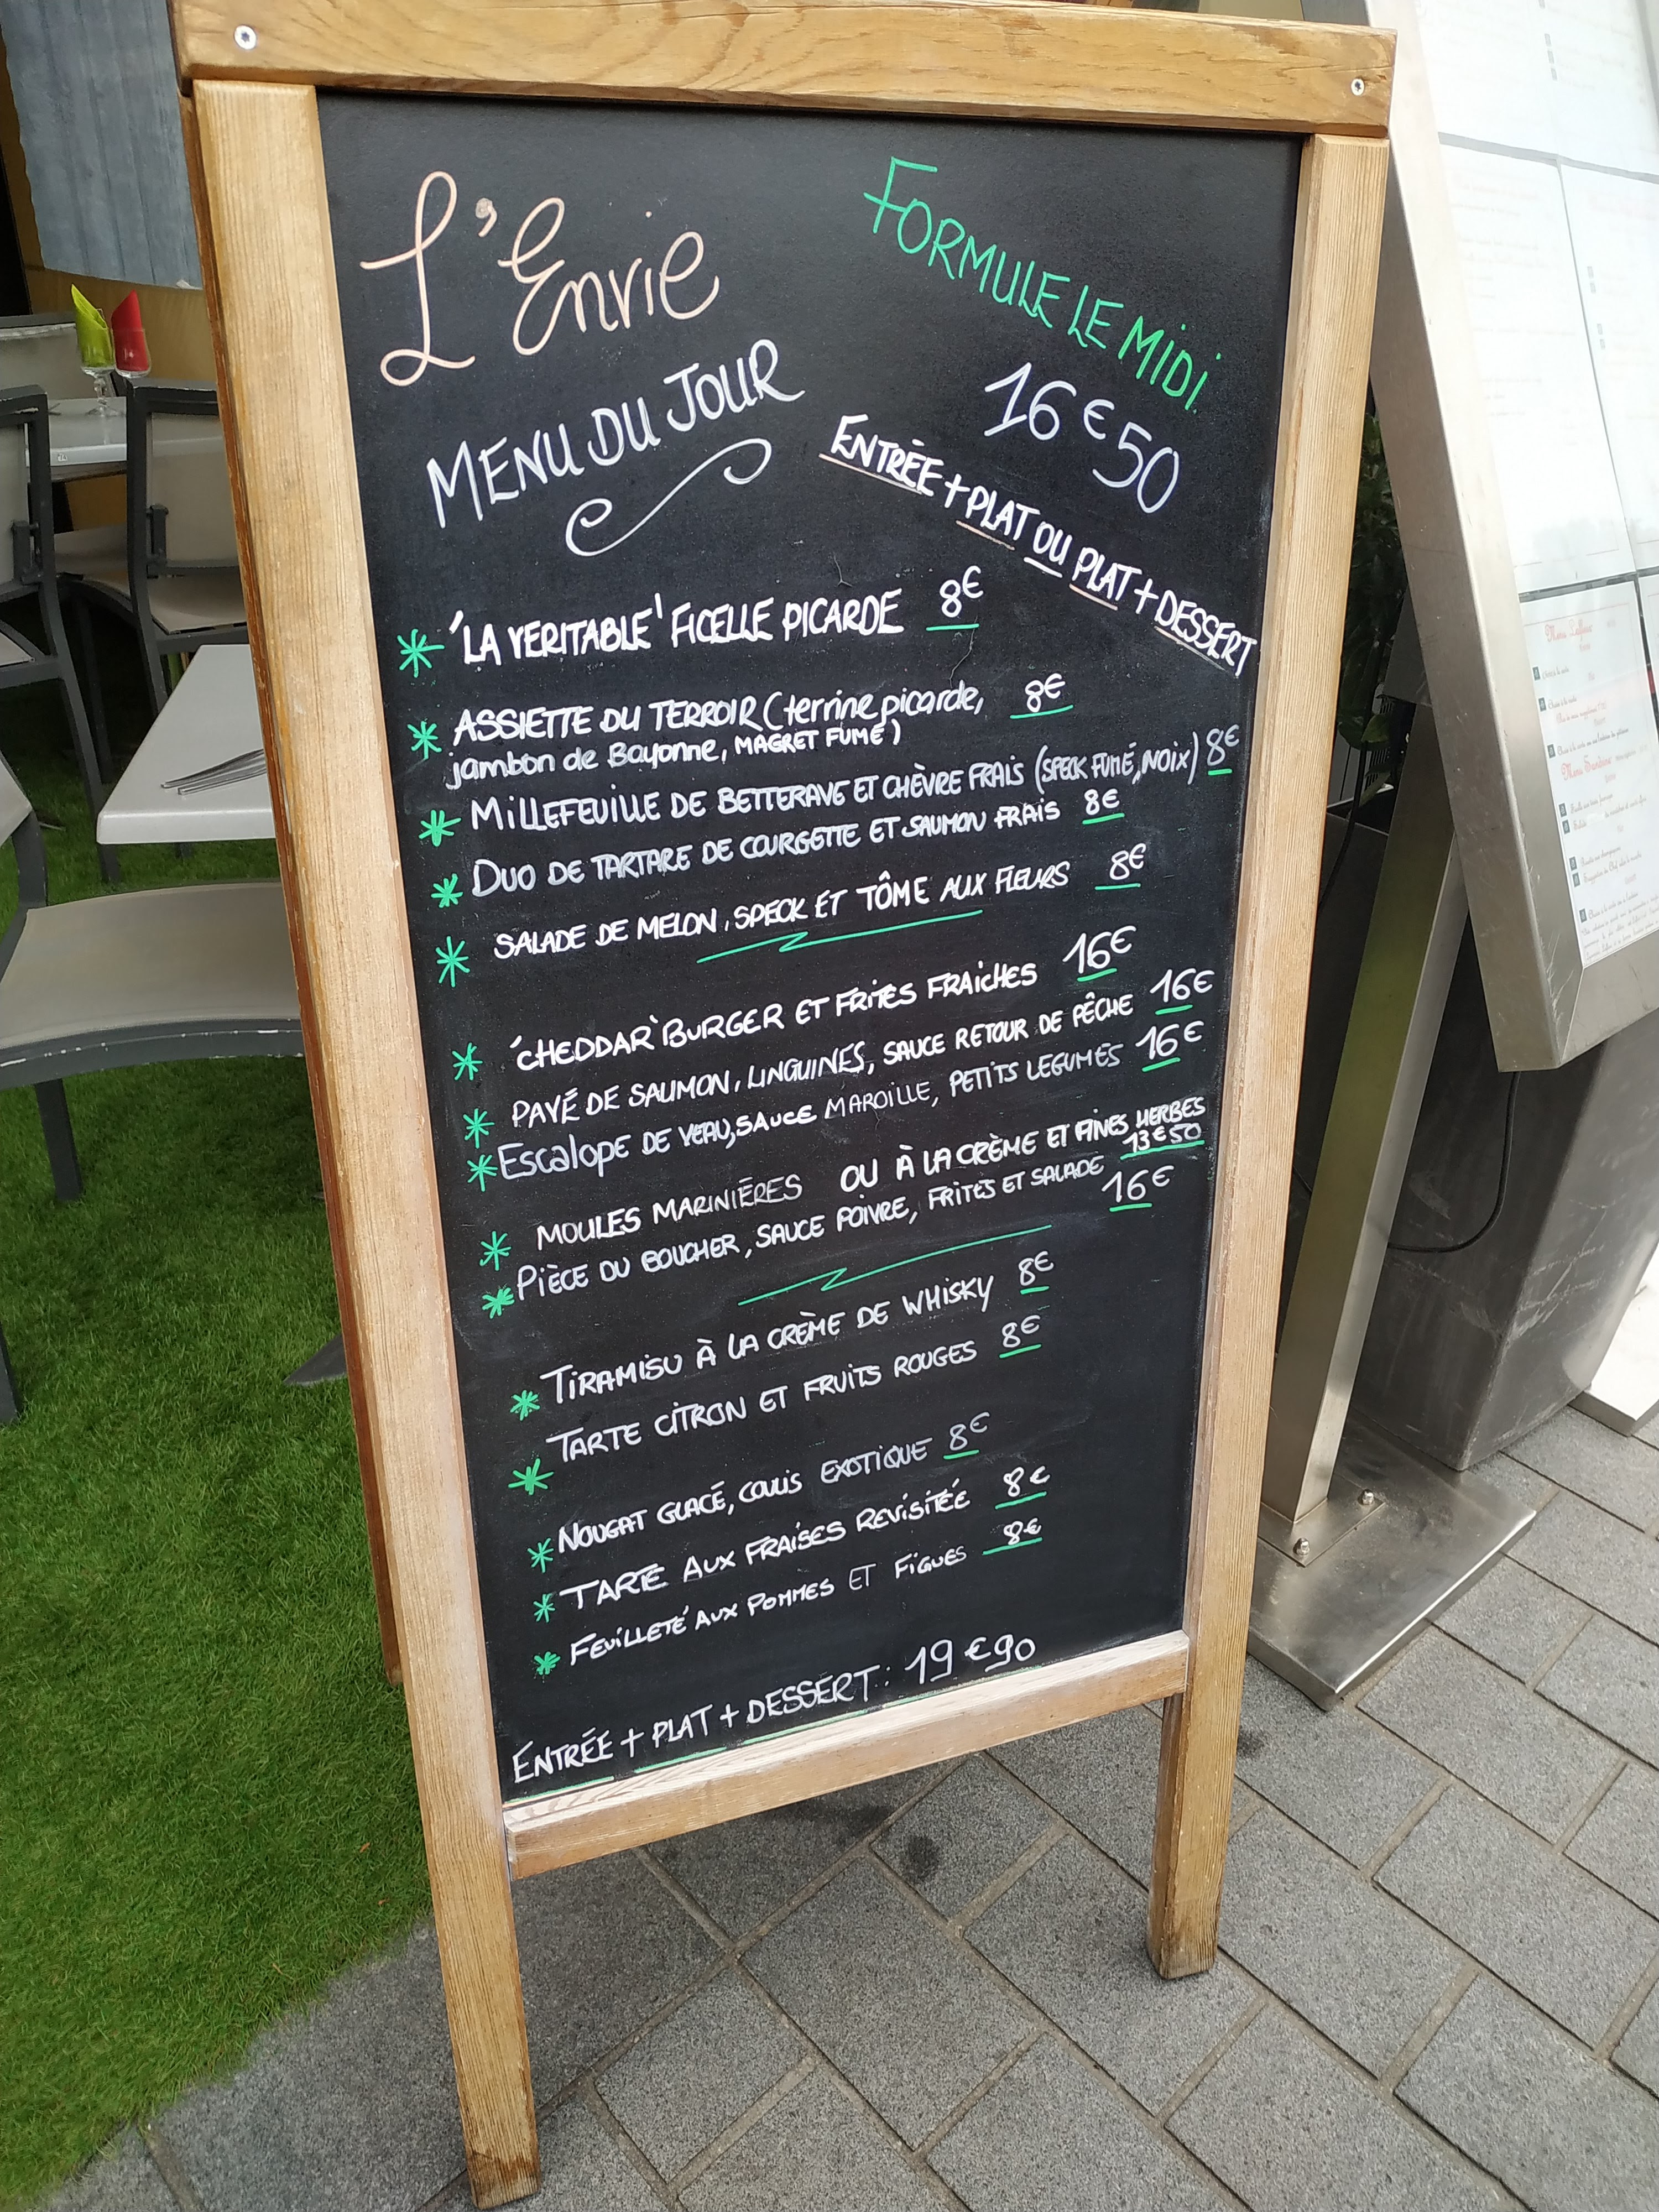 L'Envie
MENU DU JOUR
FORMULE LE MIDI
16€50
ENTRÉE + PLAT OU PLAT + DESSERT
* 'LA VERITABLE' FICELLE PICARDE 8€
* ASSIETTE DU TERROIR (terrine picarde, 8€
jambon de Bayonne, MAGRET FUMÉ)
* MILLEFEUILLE DE BETTERAVE ET CHÈVRE FRAIS (SPECK FUMÉ, NOIX) 8€
* DUO DE TARTARE DE COURGETTE ET SAUMON FRAIS 8€
* SALADE DE MELON, SPECK ET TÔME AUX FLEURS 8€
* 'CHEDDAR' BURGER ET FRITES FRAICHES 16€
* PAVÉ DE SAUMON, LINGUINES, SAUCE RETOUR DE PÊCHE 16€
* Escalope DE VEAU, SAUCE MAROILLE, PETITS LEGUMES 16€
* MOULES MARINIÈRES OU À LA CRÈME ET FINES HERBES
13€50
* PIÈCE DU BOUCHER, SAUCE POIVRE, FRITES ET SALADE 16€
* TIRAMISU À LA CRÈME DE WHISKY 8€
* TARTE CITRON ET FRUITS ROUGES 8€
* NOUGAT GLACÉ, COULIS EXOTIQUE 8€
* TARTE AUX FRAISES REVISITÉE 8€
* FEUILLETÉ AUX POMMES ET FIGUES 8€
ENTRÉE + PLAT + DESSERT : 19€90